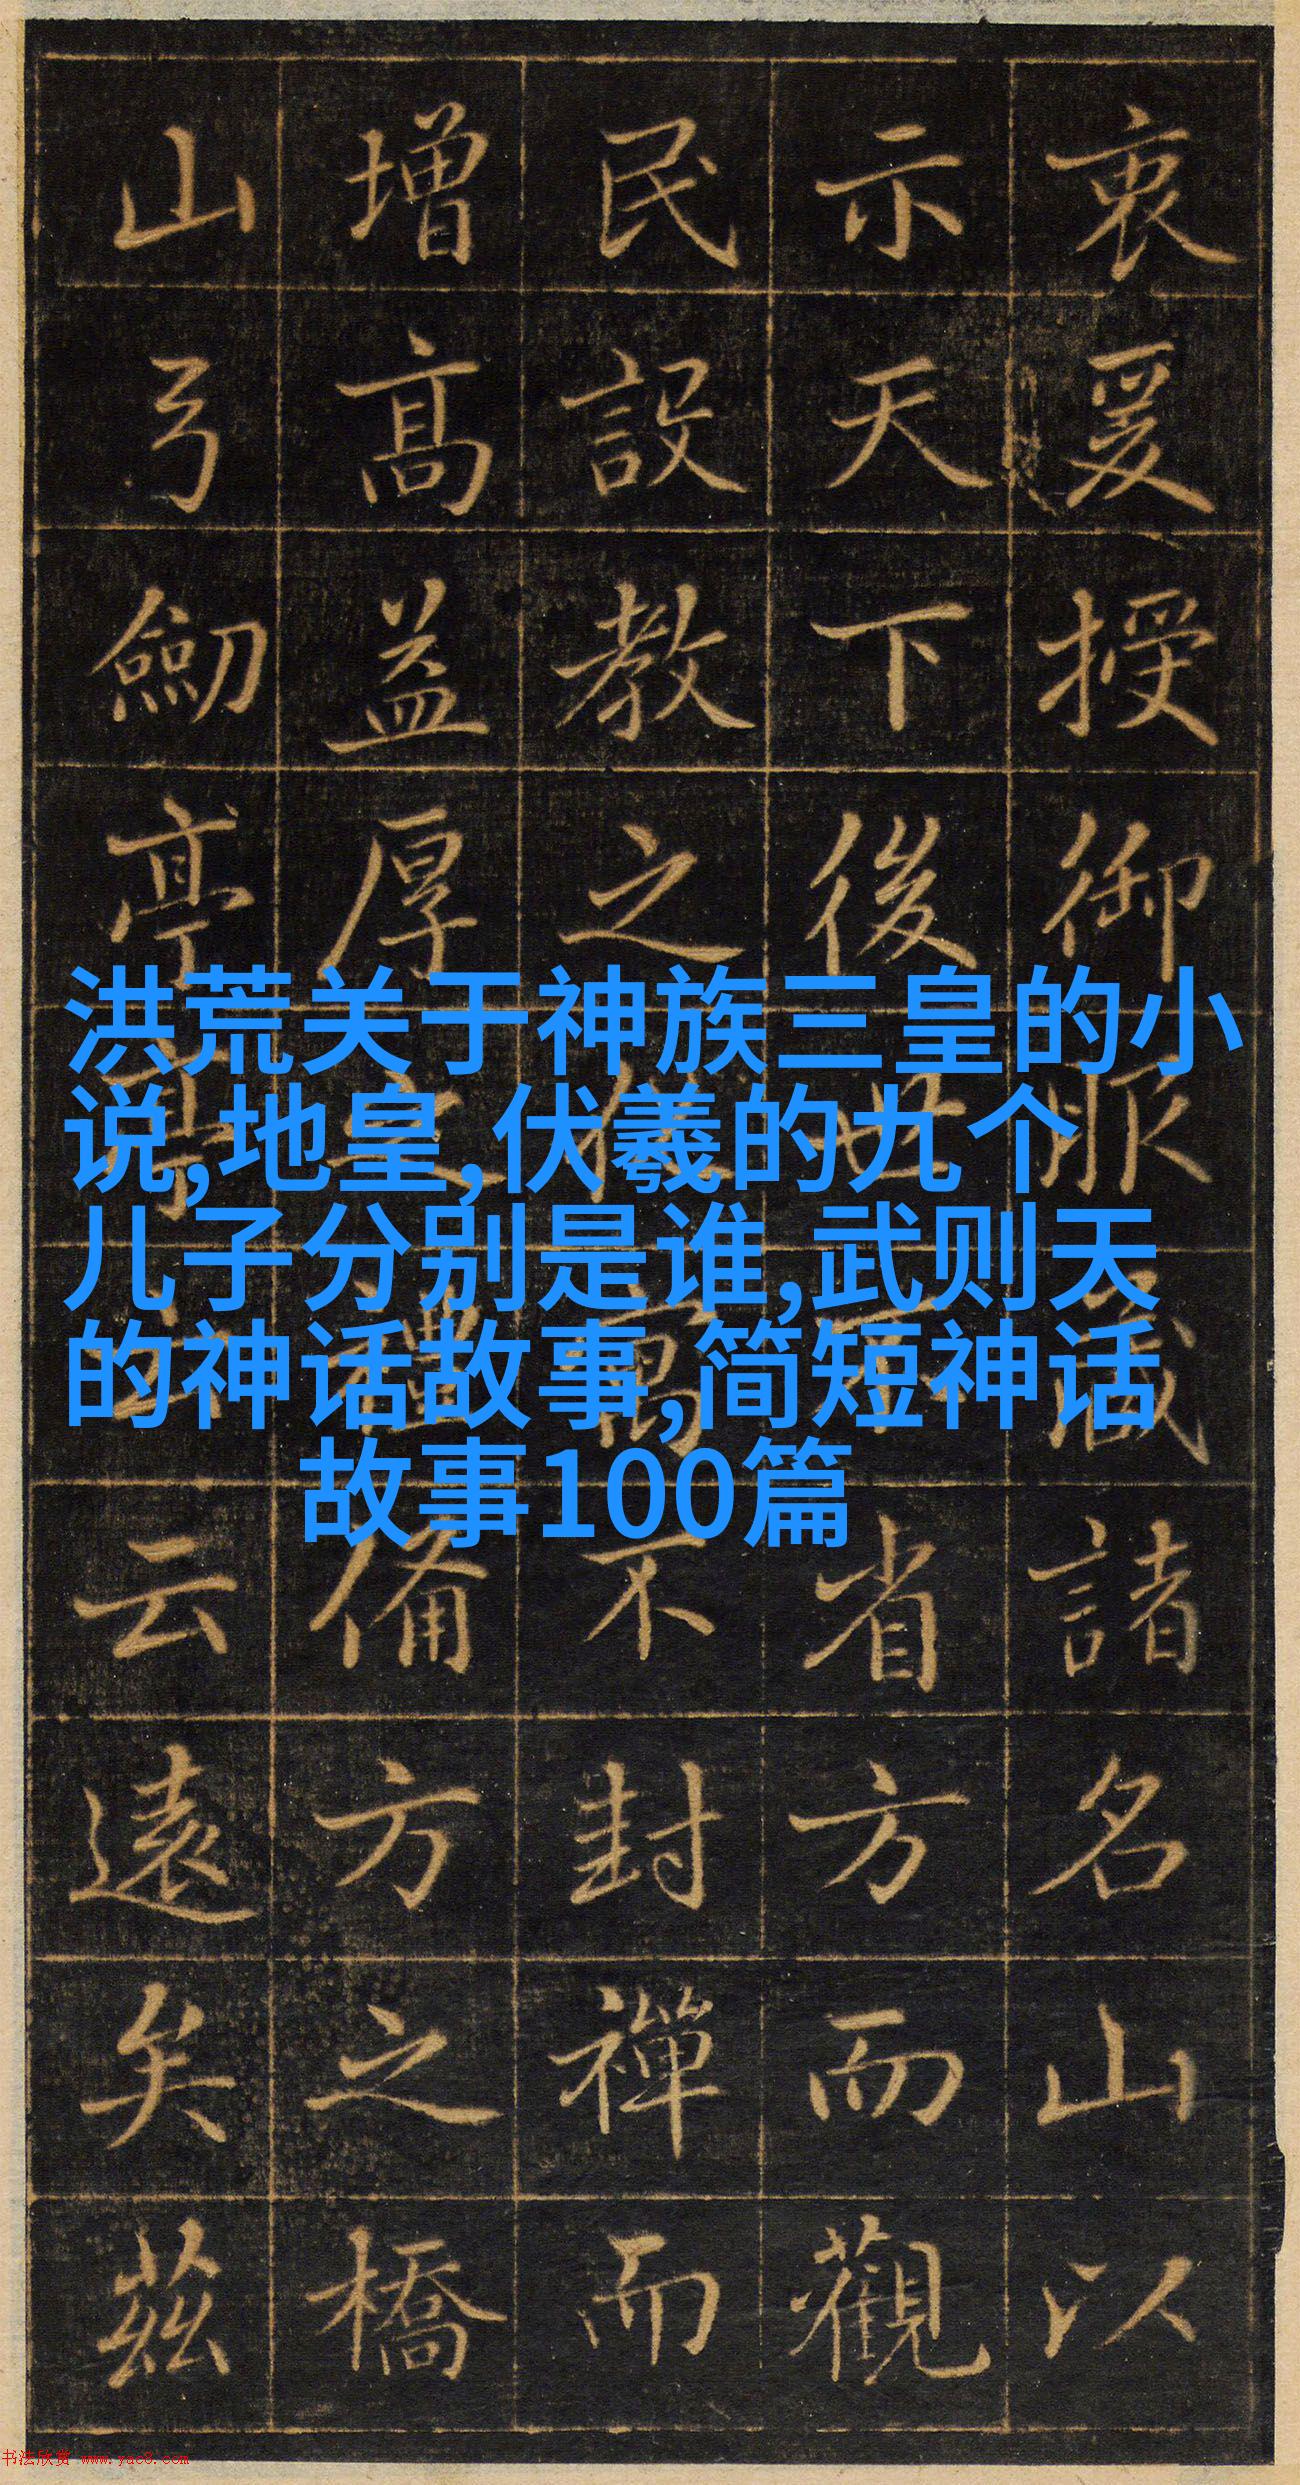 衷爰授御服藏諸名山以
示天下後世省方而觀
民設教之萬不封禪而
增高益厚之禮備方之橋
山弓劒亭亭云云遠矣茲
洪荒关于神族三皇的小
说,地皇,伏羲的九个
儿子分别是谁,武则天
的神话故事,简短神话
故事100篇
书法欣赏 www.yac8.com